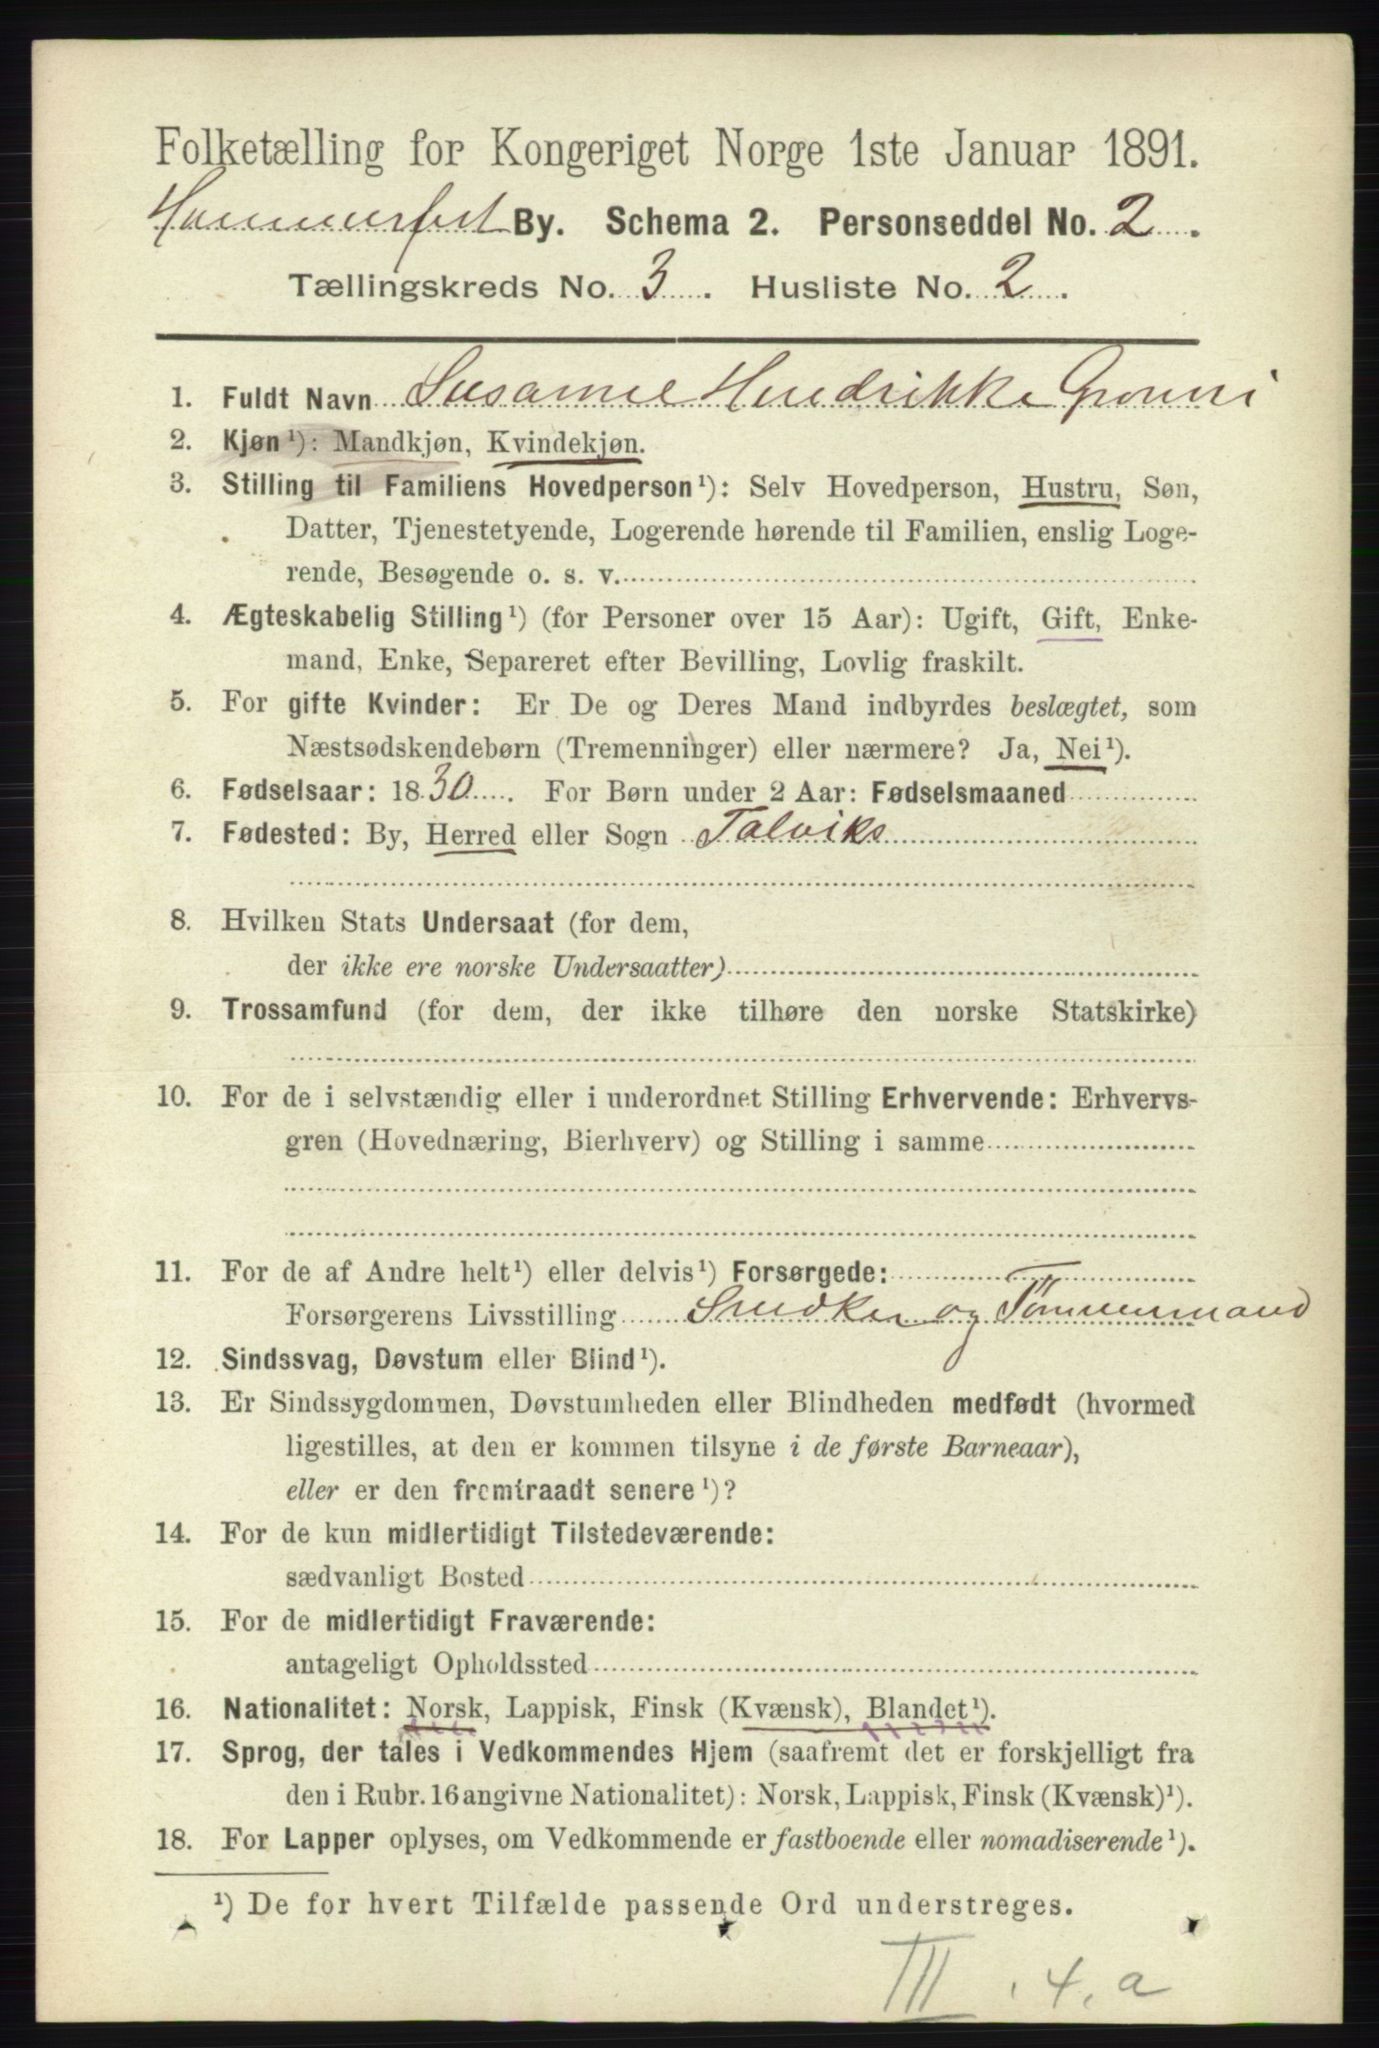 Folketælling for Kongeriget Norge 1ste Januar 1891.
Hammerfest By. Schema 2. Personseddel No. 2.
Tællingskreds No. 3. Husliste No. 2.
1. Fuldt Navn Susanne Hendrikke Gronni
2. Kjøn¹): Mandkjøn, Kvindekjøn.
3. Stilling til Familiens Hovedperson¹): Selv Hovedperson, Hustru, Søn,
Datter, Tjenestetyende, Logerende hørende til Familien, enslig Loge-
rende, Besøgende o. s. v.
4. Ægteskabelig Stilling¹) (for Personer over 15 Aar): Ugift, Gift, Enke-
mand, Enke, Separeret efter Bevilling, Lovlig fraskilt.
5. For gifte Kvinder: Er De og Deres Mand indbyrdes beslægtet, som
Næstsødskendebørn (Tremenninger) eller nærmere? Ja, Nei¹).
6. Fødselsaar: 1830. For Børn under 2 Aar: Fødselsmaaned
7. Fødested: By, Herred eller Sogn Talviks
8. Hvilken Stats Undersaat (for dem,
der ikke ere norske Undersaatter)
9. Trossamfund (for dem, der ikke tilhøre den norske Statskirke)
10. For de i selvstændig eller i underordnet Stilling Erhvervende: Erhvervs-
gren (Hovednæring, Bierhverv) og Stilling i samme
11. For de af Andre helt¹) eller delvis¹) Forsørgede:
Forsørgerens Livsstilling Snedker og Tömmermand
12. Sindssvag, Døvstum eller Blind¹).
13. Er Sindssygdommen, Døvstumheden eller Blindheden medfødt (hvormed
ligestilles, at den er kommen tilsyne i de første Barneaar),
eller er den fremtraadt senere¹)?
14. For de kun midlertidigt Tilstedeværende:
sædvanligt Bosted
15. For de midlertidigt Fraværende:
antageligt Opholdssted
16. Nationalitet: Norsk, Lappisk, Finsk (Kvænsk), Blandet¹).
17. Sprog, der tales i Vedkommendes Hjem (saafremt det er forskjelligt fra
den i Rubr. 16 angivne Nationalitet): Norsk, Lappisk, Finsk (Kvænsk)¹).
18. For Lapper oplyses, om Vedkommende er fastboende eller nomadiserende¹).
¹) De for hvert Tilfælde passende Ord understreges.
III. 4. a